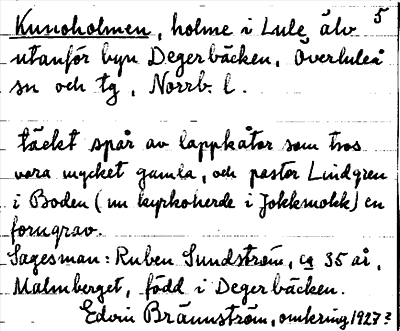 5
Kunoholmen, holme i Lule älv
utanför byn Degerbäcken, Överluleå
sn och tg, Norrb. l.
täckt spår av lappkåtor som tros
vara mycket gamla, och pastor Lindgren
i Boden (nu kyrkoherde i Jokkmokk) en
forngrav.
Sagesman: Ruben Sundström, ca 35 år,
Malmberget, född i Degerbäcken.
Edvin Brännström, omkring 1927?